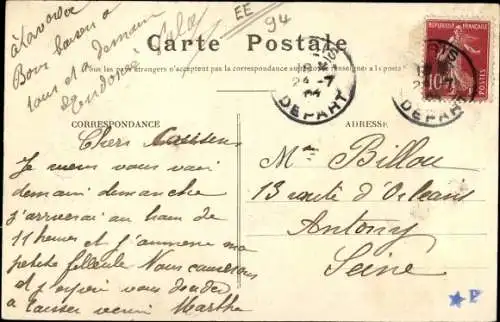 à la votre
Bons baisers a
tous et a demain
EE
94
Carte Postale
Tous les pays étrangers n'acceptent pas la correspondance au recto
renseignes à la Poste
RÉPUBLIQUE FRANÇAISE
10
POSTES
DEPART
DEPART
CORRESPONDANCE
ADRESSE
Chers
Je viens vous voir
demain dimanche
j'arriverai au train de
11 heures et j'amene ma
petite filleule Nous causerons
et j'espère vous
à laisser venir Marthe
Mme Billou
13 route d'Orleans
Antony
Seine
P